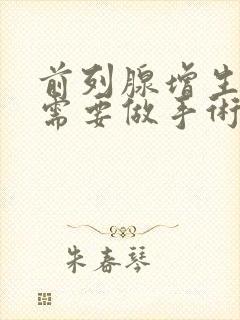 前列腺增生
需要做手術
朱春琴